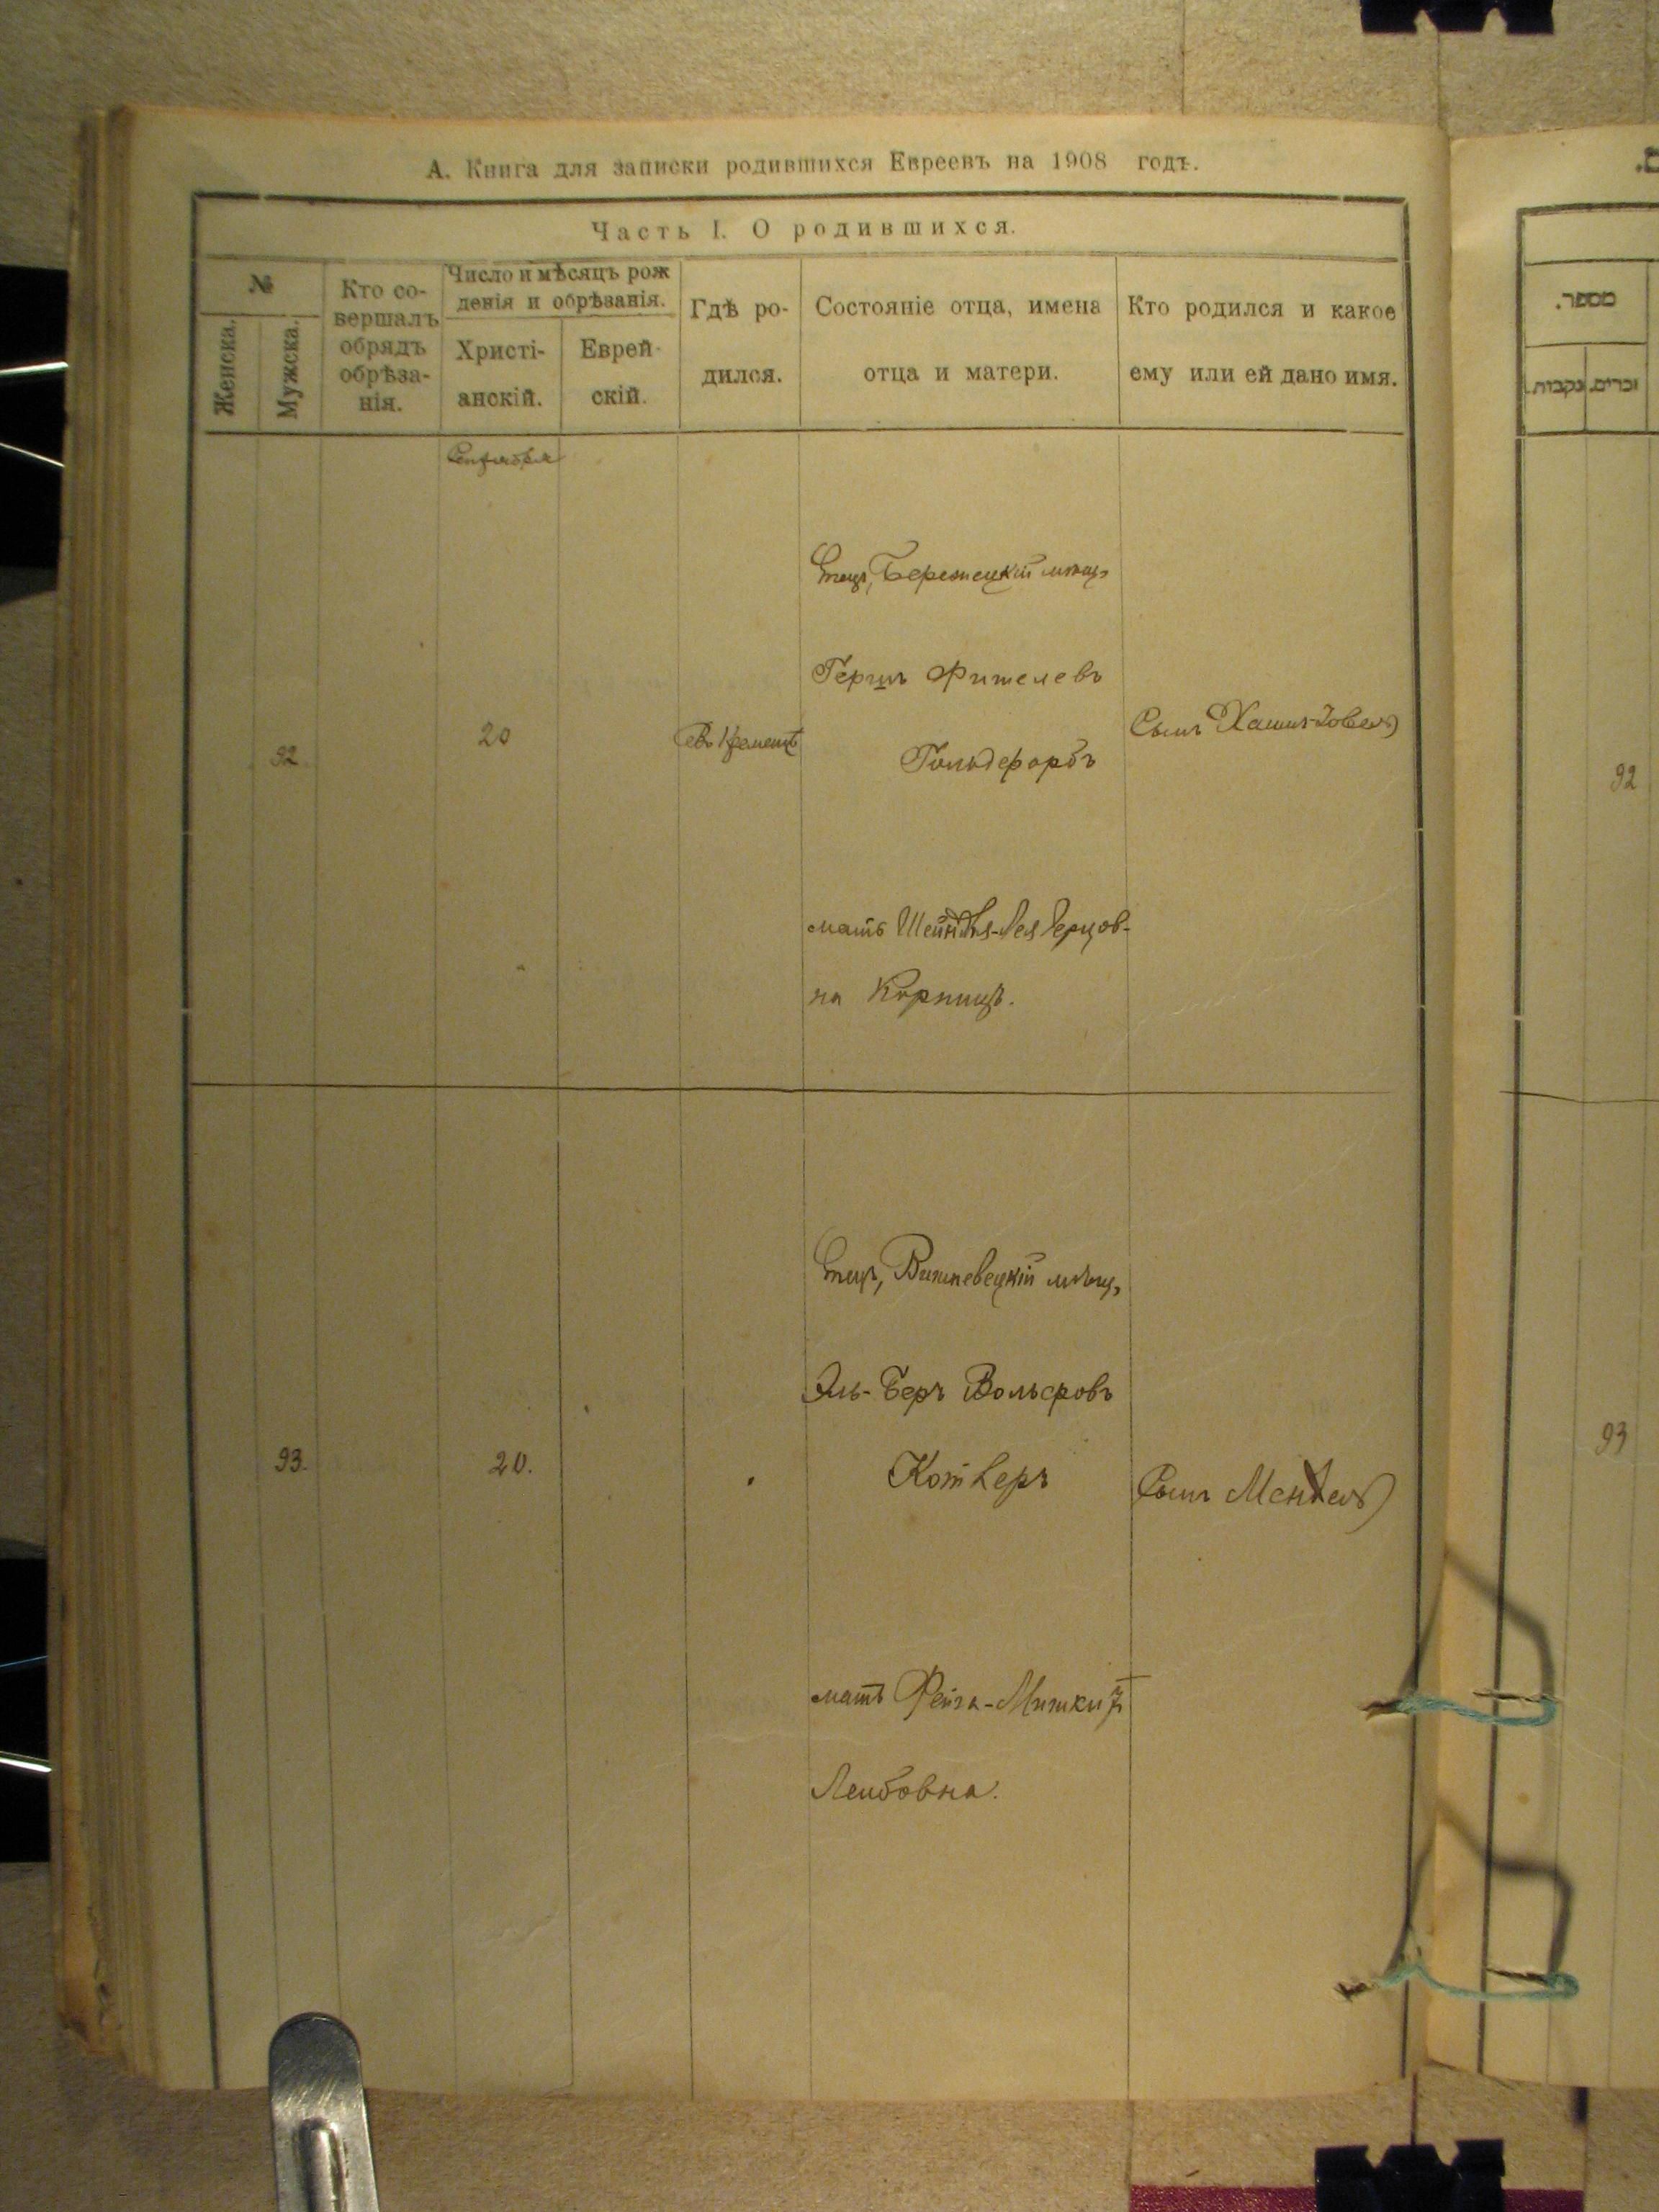 А. Книга для записки родившихся Евреевъ на 1908 годъ.
Часть I. О родившихся.
№
Женска.
Мужска.
Кто со-
вершалъ
обрядъ
обрѣза-
нія.
Число и мѣсяцъ рож
денія и обрѣзанія.
Христі-
анскій.
Еврей-
скій.
Гдѣ ро-
дился.
Состояніе отца, имена
отца и матери.
Кто родился и какое
ему или ей дано имя.
Сентября
92
20
Отецъ, Бережецкій мѣщ.
Гершъ Фишелевъ
Гольдфарбъ
мать Шейндля-Лея Герцов-
на
Сынъ
93.
20.
Отецъ, Вишневецкій мѣщ.
Эль-Беръ Вольфовъ
Котлеръ
мать Фейга-
Лейбовна.
Сынъ Мендель
מספר.
נקבות.
זכרים.
92
93